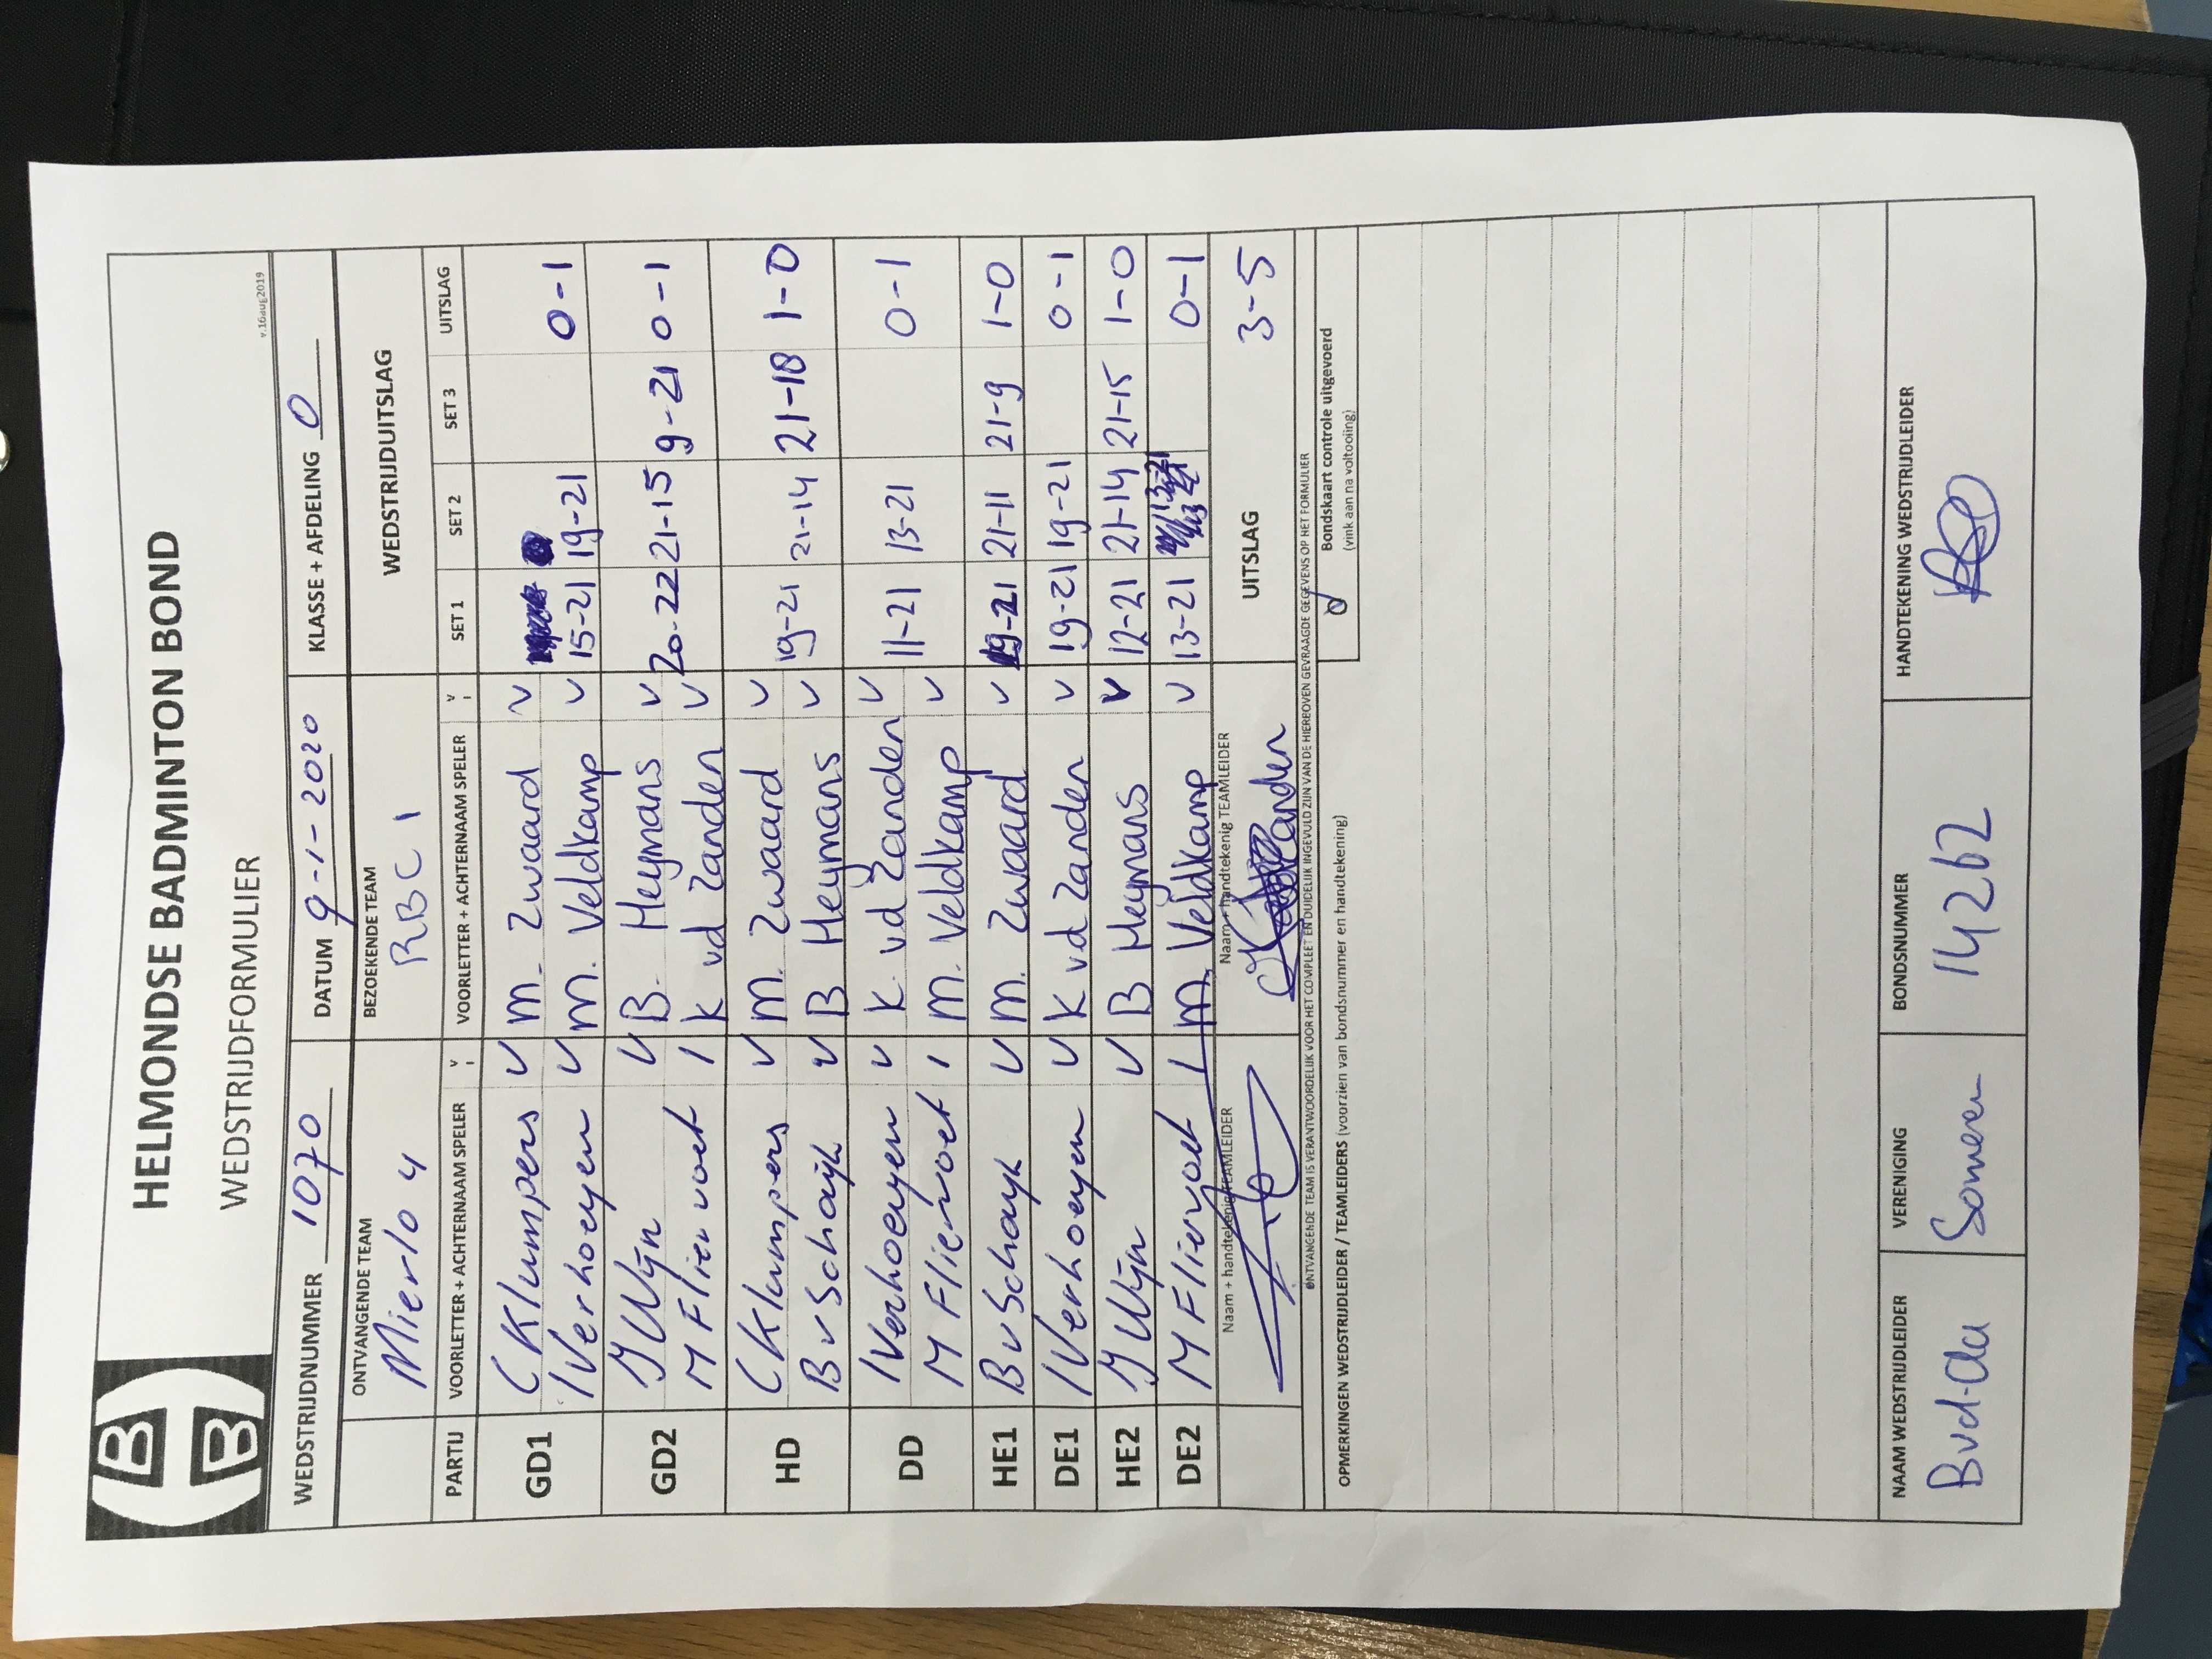 HELMONDSE BADMINTON BOND
WEDSTRIJDFORMULIER
v.16aug2019
WEDSTRIJDNUMMER 1070 DATUM 9-1-2020 KLASSE + AFDELING 0
ONTVANGENDE TEAM BEZOEKENDE TEAM WEDSTRIJDUITSLAG
Mierlo 4 RBC 1
PARTIJ VOORLETTER + ACHTERNAAM SPELER V I VOORLETTER + ACHTERNAAM SPELER V I SET 1 SET 2 SET 3 UITSLAG
GD1 C Klumpers V M. Zwaard V
I Verhoeyen V M. Veldkamp V 15-21 19-21 0-1
GD2 J Wijn V B. Heymans V 20-22 21-15 9-21 0-1
M Fliervoet I K vd Zanden V
HD C Klumpers V M. Zwaard V 19-21 21-14 21-18 1-0
B v Schaijk V B Heymans V
DD I Verhoeyen V K. vd Zanden V 11-21 13-21 0-1
M Fliervoet I M. Veldkamp V
HE1 B v Schayk V M. Zwaard V 19-21 21-11 21-9 1-0
DE1 I Verhoeyen V K vd Zanden V 19-21 19-21 0-1
HE2 J Wijn V B Heymans V 12-21 21-14 21-15 1-0
DE2 M Fliervoet I M. Veldkamp V 13-21 0-1
Naam + handtekenig TEAMLEIDER Naam + handtekenig TEAMLEIDER UITSLAG 3-5
ONTVANGENDE TEAM IS VERANTWOORDELIJK VOOR HET COMPLEET EN DUIDELIJK INGEVULD ZIJN VAN DE HIERBOVEN GEVRAAGDE GEGEVENS OP HET FORMULIER
Bondskaart controle uitgevoerd
(vink aan na voltooiing)
OPMERKINGEN WEDSTRIJDLEIDER / TEAMLEIDERS (voorzien van bondsnummer en handtekening)
NAAM WEDSTRIJDLEIDER VERENIGING BONDSNUMMER HANDTEKENING WEDSTRIJDLEIDER
Someren 14262